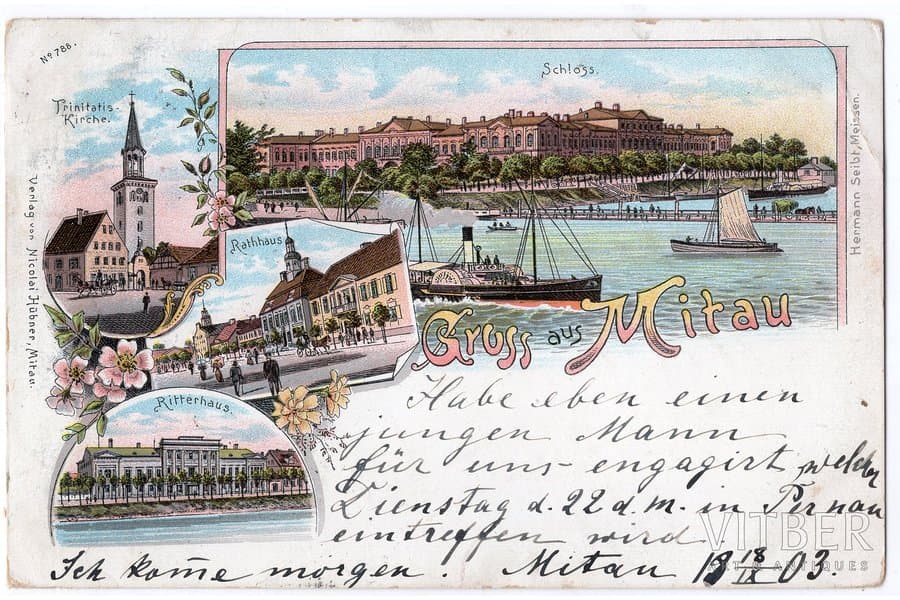 No 788.
Schloss.
Trinitatis-
Kirche.
Rathhaus
Gruss aus Mitau
Ritterhaus.
Verlag von Nicolai Hübner, Mitau.
Hermann Seibt, Meissen.
Habe eben einen
jungen Mann
für uns engagirt, welcher
Dienstag d. 22 d. m. in Pernau
eintreffen wird
Ich kom̅e morgen. Mitau 18/IX 03.
VITBER
ART & ANTIQUES